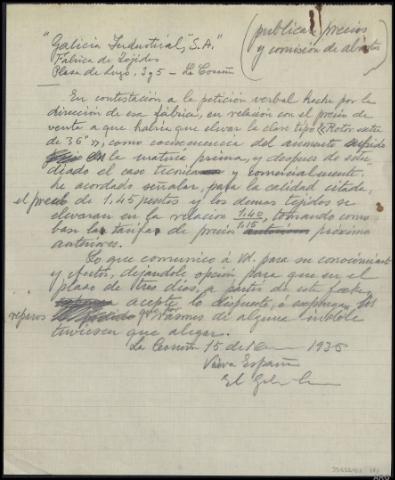 (publicar precios
y comisión de abastos)
"Galicia Industrial, S.A."
Fábrica de Tejidos
Plaza de Lugo, 3 y 5 - La Coruña
En contestación a la petición verbal hecha por la
dirección de esa fábrica, en relación con el precio de
venta a que habría que elevar la clase tipo "Retor
de 36", como consecuencia del aumento sufrido
en la materia prima, y despues de estu
diado el caso tecnica y comercialmente
he acordado señalar, para la calidad citada,
el precio de 1.45 pesetas y los demas tejidos se
elevaran en la relación 1.40/1.15, tomando como
base la tarifa de precios próximo
anteriores.
Lo que comunico á Vd. para su conocimiento
y efectos, dejándole opción para que en el
plazo de tres dias, a partir de esta fecha
acepte lo dispuesto, ó exponga los
reparos que de alguna índole
tuviesen que alegar.
La Coruña 15 de 1936
Viva España
El